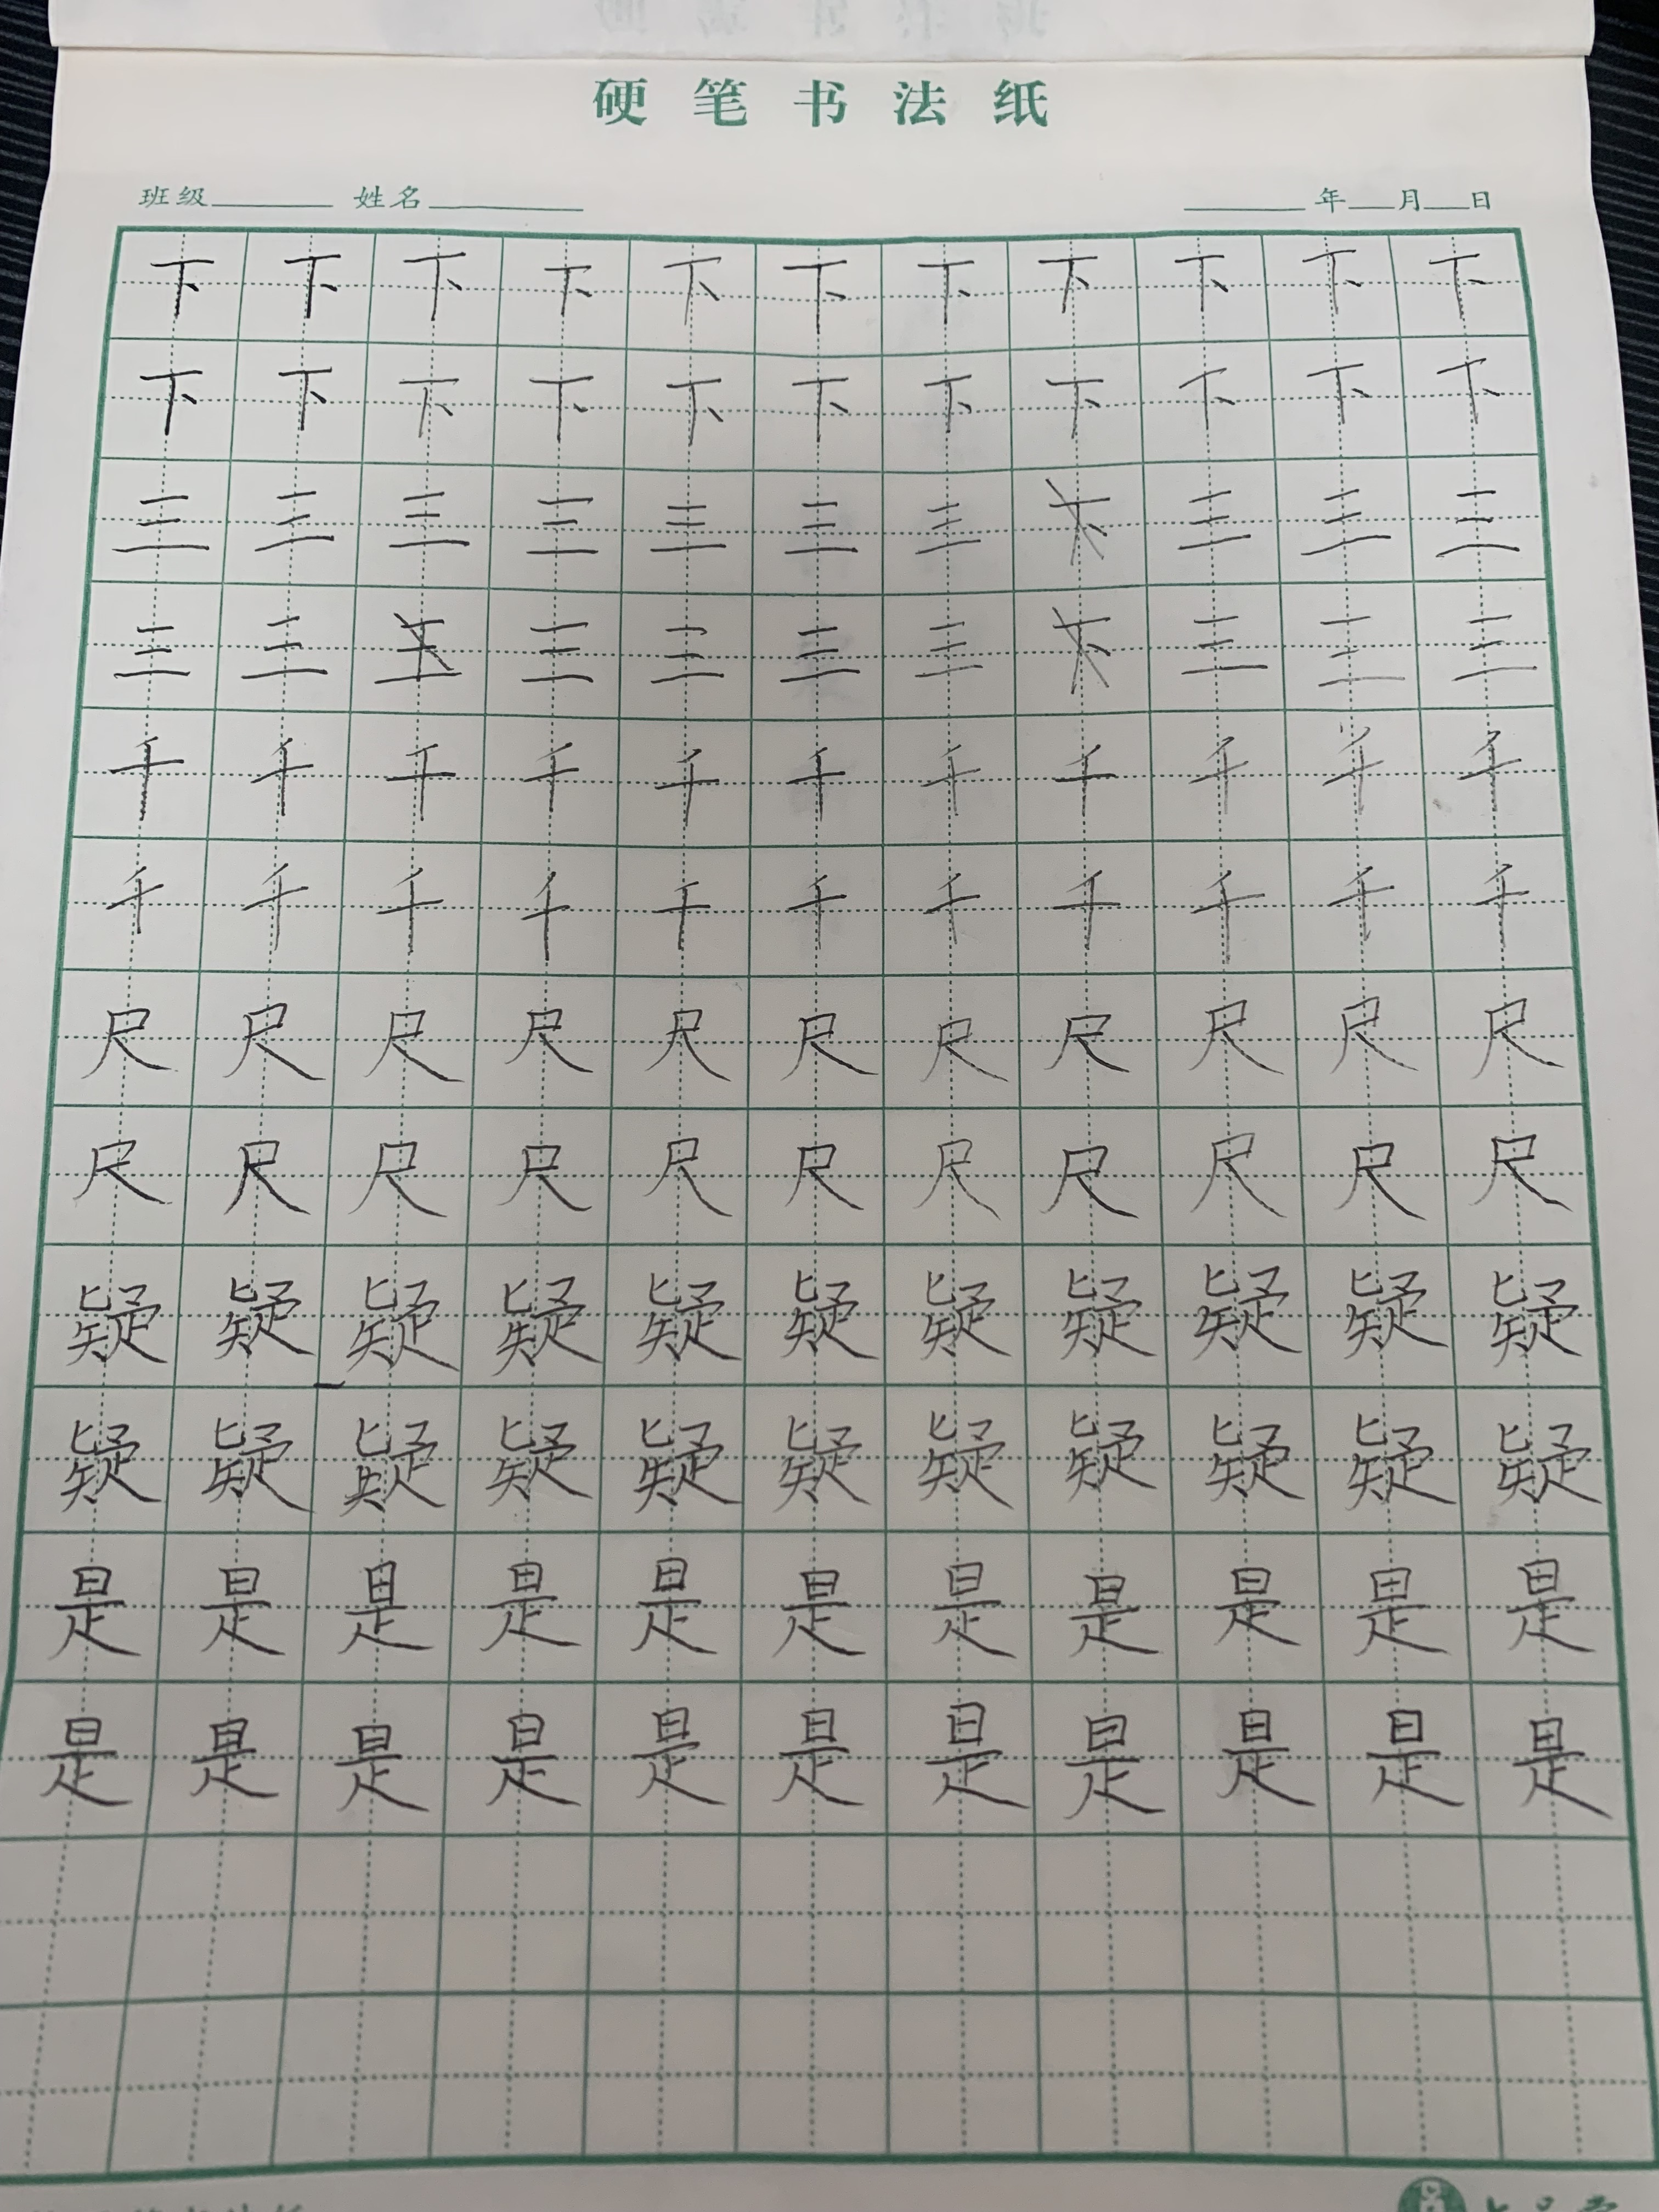 硬笔书法纸
班级 姓名 年 月 日
下下下下下下下下下下下
下下下下下下下下下下下
三三三三三三三三三三
三三三三三三三三三
千千千千千千千千千千千
千千千千千千千千千千千
尺尺尺尺尺尺尺尺尺尺尺
尺尺尺尺尺尺尺尺尺尺尺
疑疑疑疑疑疑疑疑疑疑疑
疑疑疑疑疑疑疑疑疑疑疑
是是是是是是是是是是是
是是是是是是是是是是是